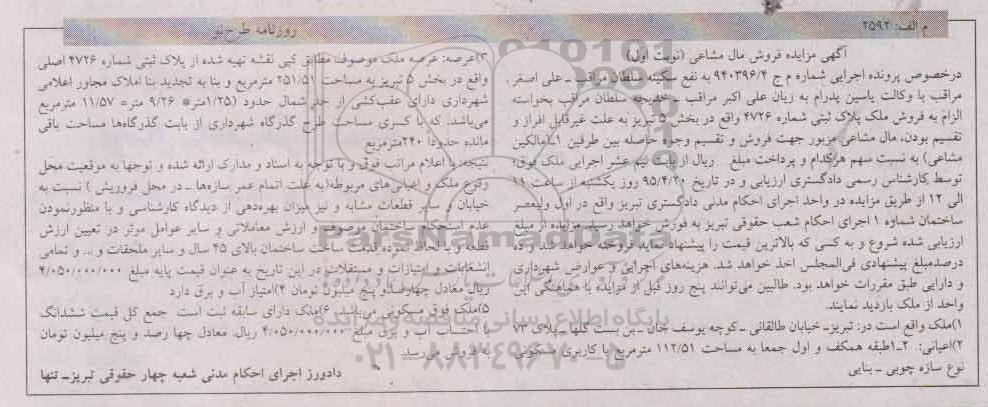 م الف: ۲۵۹۲
روزنامه طرح نو
آگهی مزایده فروش مال مشاعی (نوبت اول)
درخصوص پرونده اجرایی شماره م ج ۹۴۰۳۹۶/۴ به نفع سکینه سلطان مراقب ـ علی اصغر
مراقب با وکالت یاسین پدرام به زیان علی اکبر مراقب ـ خدیجه سلطان مراقب بخواسته
الزام به فروش ملک پلاک ثبتی شماره ۴۷۲۶ واقع در بخش ۵ تبریز به علت غیرقابل افراز و
تقسیم بودن، مال مشاعی مزبور جهت فروش و تقسیم وجوه حاصله بین طرفین (مالکین
مشاعی) به نسبت سهم هرکدام و پرداخت مبلغ ریال از بابت نیم عشر اجرایی ملک فوق؛
توسط کارشناس رسمی دادگستری ارزیابی و در تاریخ ۹۵/۴/۲۰ روز یکشنبه از ساعت ۱۹
الی ۱۲ از طریق مزایده در واحد اجرای احکام مدنی دادگستری تبریز واقع در اول ولیعصر
ساختمان شماره ۱ اجرای احکام شعب حقوقی تبریز به فروش خواهد رسید. مزایده از مبلغ
ارزیابی شده شروع و به کسی که بالاترین قیمت را پیشنهاد نماید فروخته خواهد شد و
درصدمبلغ پیشنهادی فی‌المجلس اخذ خواهد شد. هزینه‌های اجرایی و عوارض شهرداری
و دارایی طبق مقررات خواهد بود. طالبین می‌توانند پنج روز قبل از مزایده با هماهنگی این
واحد از ملک بازدید نمایند.
۱)ملک واقع است در: تبریز ـ خیابان طالقانی ـ کوچه یوسف خان ـ بن بست گلها ـ پلاک ۷۳
۲)اعیانی: ۲ـ۱طبقه همکف و اول جمعا به مساحت ۱۱۲/۵۱ مترمربع با کاربری مسکونی
نوع سازه چوبی ـ بنایی
۳)عرصه: عرصه ملک موصوف مطابق کپی نقشه تهیه شده از پلاک ثبتی شماره ۴۷۲۶ اصلی
واقع در بخش ۵ تبریز به مساحت ۲۵۱/۵۱ مترمربع و بنا به تجدید بنا املاک مجاور اعلامی
شهرداری دارای عقب‌کشی از حد شمال حدود (۱/۲۵متر* ۹/۲۶ متر= ۱۱/۵۷ مترمربع
می‌باشد. که با کسری مساحت طرح گذرگاه شهرداری از بابت گذرگاه‌ها مساحت باقی
مانده حدودا ۲۴۰مترمربع
نتیجه: با اعلام مراتب فوق و با توجه به اسناد و مدارک ارائه شده و توجها به موقعیت محل
وقوع ملک و اعیانی‌های مربوطه(به علت اتمام عمر سازه‌ها ـ در محل فروریش ) نسبت به
خیابان و سایر قطعات مشابه و نیز میزان بهره‌دهی از دیدگاه کارشناسی و با منظورنمودن
عدم استحکام ساختمان موصوف و ارزش معاملاتی و سایر عوامل موثر در تعیین ارزش
قدمت ساخت ساختمان بالای ۴۵ سال و سایر ملحقات و ... و تمامی
انشعابات و امتیازات و مستقلات در این تاریخ به عنوان قیمت پایه مبلغ ۴/۰۵۰/۰۰۰/۰۰۰
ریال معادل چهارصدو پنج میلیون تومان ۴)امتیاز آب و برق دارد
۵)ملک فوق مسکونی می‌باشد. ۶)ملک دارای سابقه ثبت است. جمع کل قیمت ششدانگ
با احتساب آب و برق مبلغ ۴/۰۵۰/۰۰۰/۰۰۰ ریال. معادل چها رصد و پنج میلیون تومان
به فروش می‌رسد.
دادورز اجرای احکام مدنی شعبه چهار حقوقی تبریزـ تنها
ParsNamadData
پایگاه اطلاع رسانی مناقصه و مزایده
۰۲۱-۸۸۳۴۹۶۷۰-۵